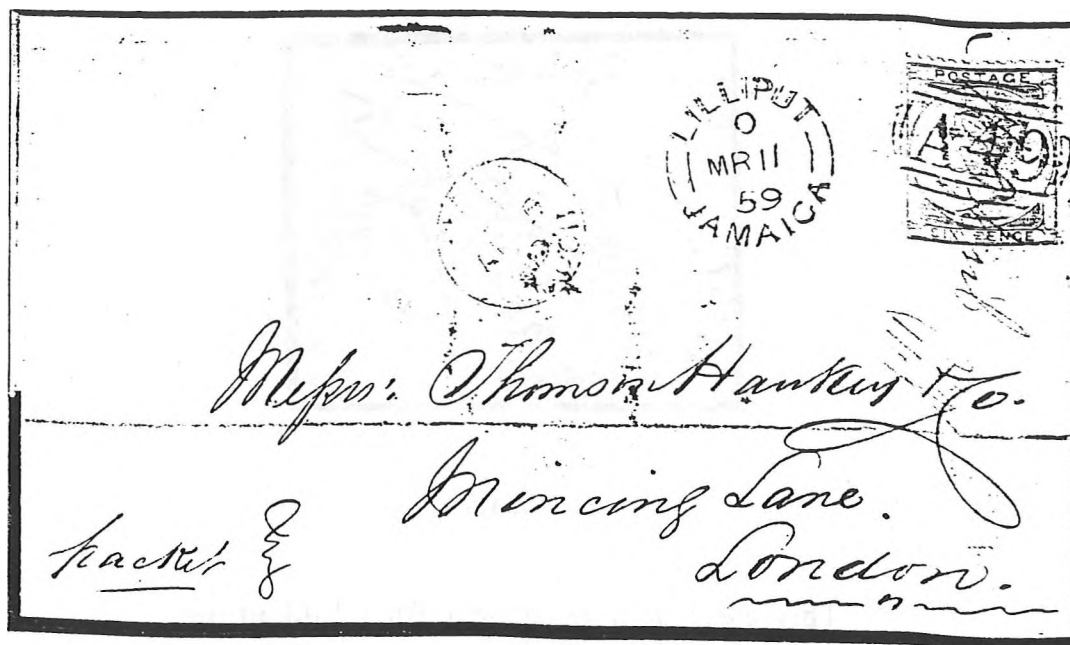 LILLIPUT
0
MR 11
59
JAMAICA
POSTAGE
A 49
SIX PENCE
Messrs: Thomson Hankey & Co.
Mincing Lane.
London.
packet